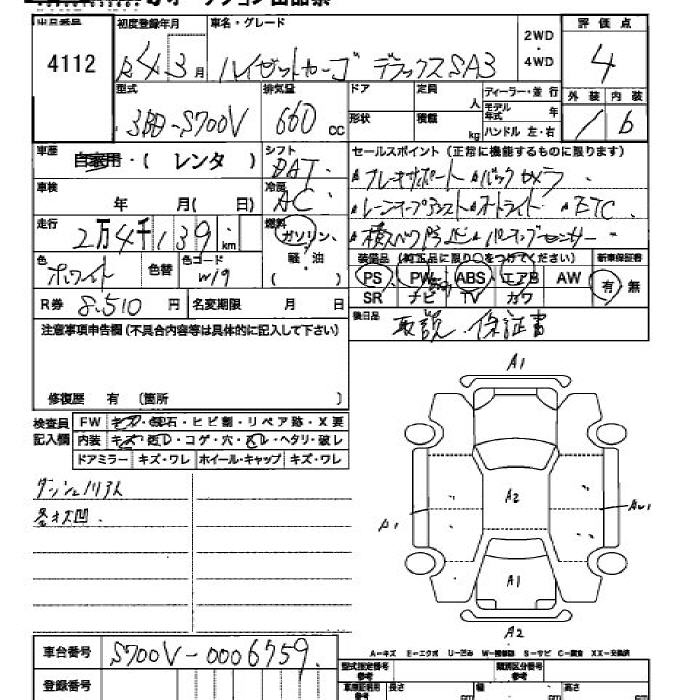 出品番号 初度登録年月 車名・グレード 評価点
4112 R4 3月 ハイゼットカーゴ デラックスSA3 2WD・4WD 4
型式 排気量 ドア 定員 ディーラー・並行 外装 内装
3BD-S700V 660cc 形状 人 積載 kg モデル年式 年 ハンドル 左・右 b
車歴 自家用・(レンタ) シフト セールスポイント(正常に機能するものに限ります)
ブレーキサポート バックカメラ
車検 年 月(日) 冷房 AC
オートライト ETC
走行 2万4千139km 燃料 ガソリン・軽・油 ( )
横スベリ防止
色 ホワイト 色替 色コード W19
装備品(純正品に限り○をつけてください) 新車保証書
PS PW ABS エアB AW 有・無
SR ナビ TV カワ
R券 8,510円 名変期限 月 日
後日品 取説 保証書
注意事項申告欄(不具合内容等は具体的に記入して下さい)
修復歴 有 (箇所 )
検査員記入欄 FW キズ・飛石・ヒビ割・リペア跡・X要
内装 キズ・コゲ・穴・ヘタリ・破レ
ドアミラー キズ・ワレ ホイール・キャップ キズ・ワレ
A1
各キズ凹.
A2
A1
A1
A2
A-キズ E-エクボ U-凹み W-補修跡 S-サビ C-腐食 XX-交換済
車台番号 S700V-0006759.
型式指定番号 類別区分番号
登録番号
長さ 幅 高さ